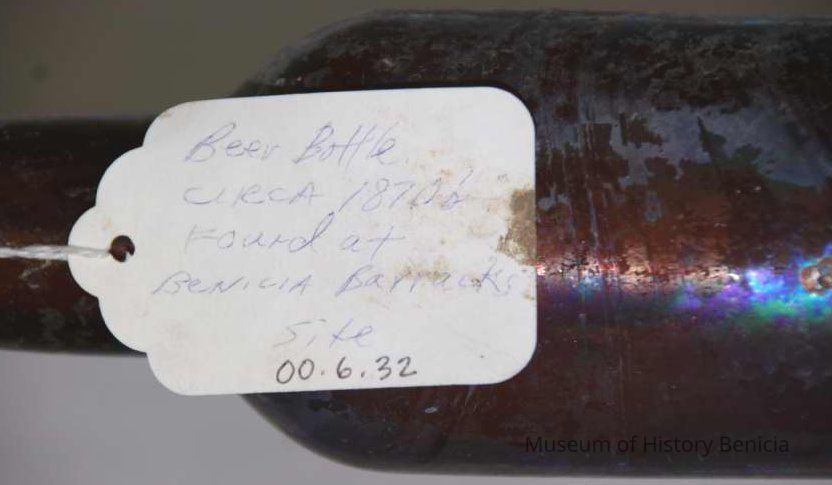 Beer Bottle
CIRCA 1870's
Found at
BENICIA Barracks
Site
00.6.32
Museum of History Benicia